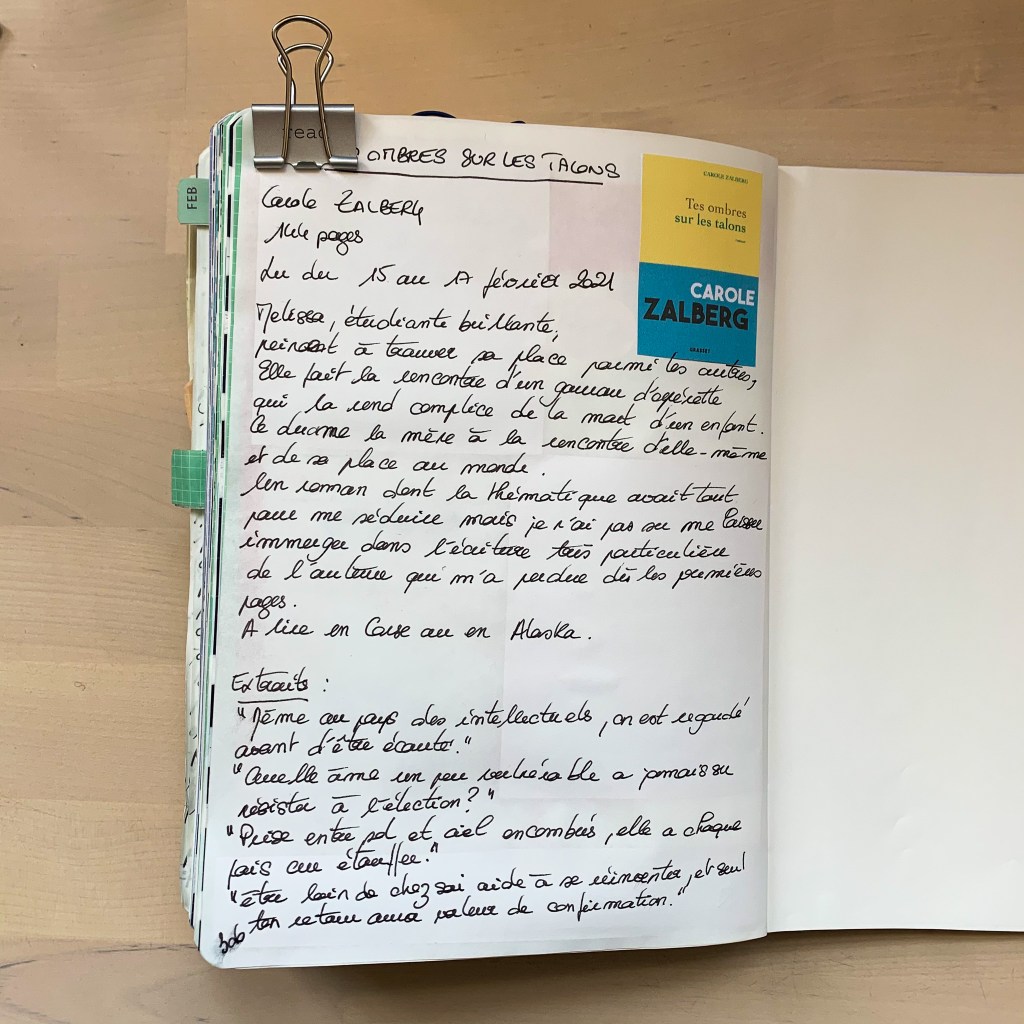 read
OMBRES SUR LES TALONS
FEB
Carole ZALBERG
pages
Lu du 15 au 17 février 2021
CAROLE ZALBERG
Tes ombres
sur les talons
roman
CAROLE
ZALBERG
GRASSET
Melissa, étudiante brillante,
peinant à trouver sa place parmi les autres,
Elle fait la rencontre d'un gourou d'opérette
qui la rend complice de la mort d'un enfant.
Ce drame la mène à la rencontre d'elle-même
et de sa place au monde.
Un roman dont la thématique avait tout
pour me séduire mais je n'ai pas su me laisser
immerger dans l'écriture très particulière
de l'auteure qui m'a perdue dès les premières
pages.
A lire en Corse ou en Alaska.
Extraits :
"Même au pays des intellectuels, on est regardé
avant d'être écouté."
"Quelle âme un peu vulnérable a jamais su
résister à l'élection?"
"Prise entre sol et ciel encombrés, elle a chaque
fois cru étouffer."
"être loin de chez soi aide à se réinventer, et seul
ton retour aura valeur de confirmation."
306